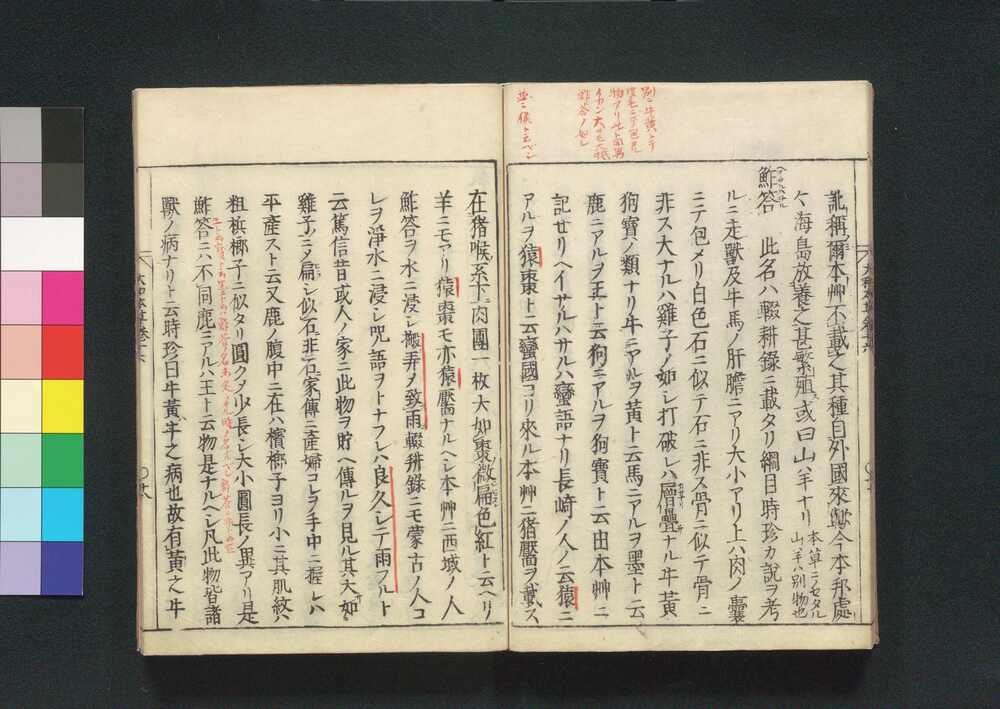 訛稱爾本艸不載之其種自外國來歟今本邦處
々海島放養之甚繁殖或曰山羊ナリ本草ニノセタル山羊ハ別物也
鮓答 此名ハ輟耕錄ニ載タリ綱目時珍カ說ヲ考
ルニ走獸及牛馬ノ肝膽ニアリ大小アリ上ハ肉ノ囊
ニテ包メリ白色石ニ似テ石ニ非ス骨ニ似テ骨ニ
非ス大ナルハ雞子ノ如シ打破レハ層疊ナル牛黃
狗寶ノ類ナリ牛ニアルヲ黃ト云馬ニアルヲ墨ト云
鹿ニアルヲ玉ト云狗ニアルヲ狗寶ト云由本艸ニ
記セリヘイサルハサルハ蠻語ナリ長崎ノ人ノ云猿ニ
アルヲ猿棗ト云蠻國ヨリ來ル本艸ニ猪靨ヲ載ス
在猪喉系下肉團一枚大如棗微扁色紅ト云ヘリ
羊ニモアリ猿棗モ亦猿靨ナルヘシ本艸ニ西域ノ人
鮓答ヲ水ニ浸シ搬弄ノ致雨輟耕錄ニモ蒙古ノ人コ
レヲ淨水ニ浸シ咒語ヲトナフレハ良久シテ雨フルト
云篤信昔或人ノ家ニ此物ヲ貯ヘ傳ルヲ見ル其大如
雞子ノミメ扁シ似石非石家傳ニ產婦コレヲ手中ニ握レハ
平產スト云又鹿ノ腹中ニ在ハ檳榔子ヨリ小ニ其肌紋ハ
粗檳榔子ニ似タリ圓クメ少長シ大小圓長ノ異アリ是
鮓答ニハ不同鹿ニアルハ玉ト云物是ナルヘシ凡此物皆諸
獸ノ病ナリト云時珍曰牛黃牛之病也故有黃之牛